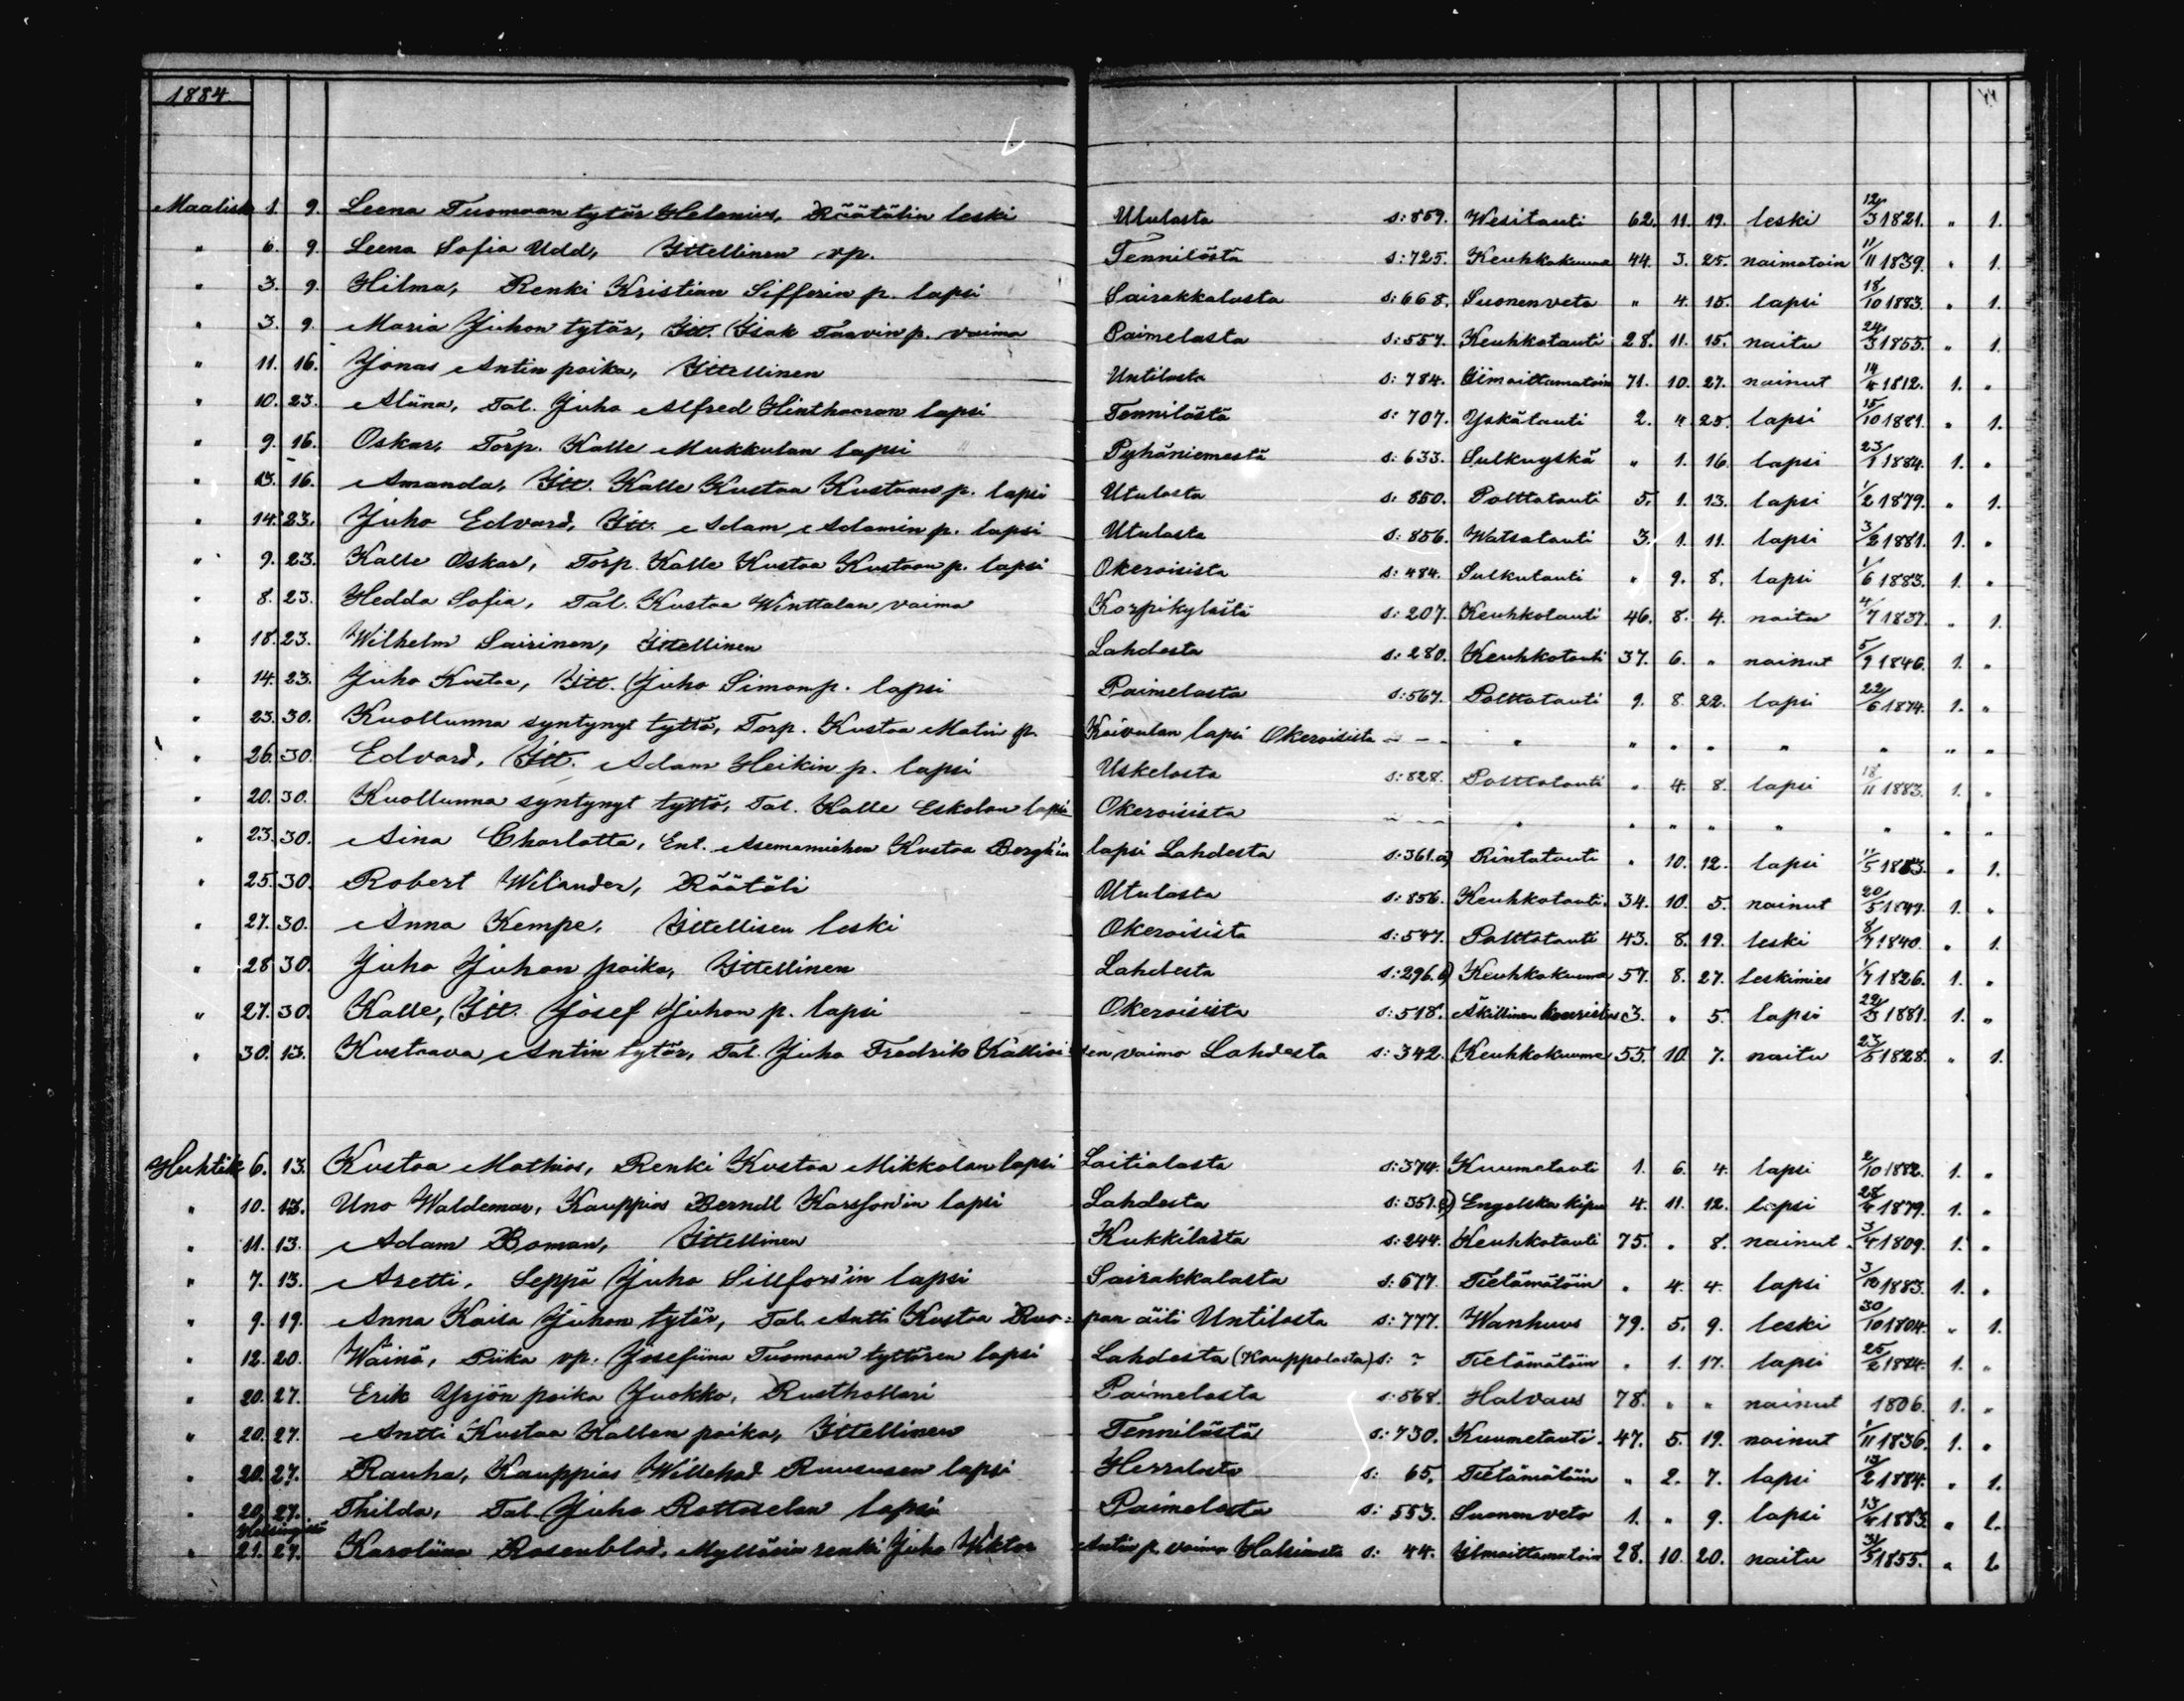 1884.
Maalisk. 1. 9. Leena Tuomaan tytär Helenius, Räätälin leski Utulasta s: 859. Wesitauti 62. 11. 19. leski 12/3 1821. " 1.
" 6. 9. Leena Sofia Udd, Ittellinen vp. Tennilästä s: 725. Keuhkokuume 44. 3. 25. naimatoin 11/11 1839. " 1.
" 3. 9. Hilma, Renki Kristian Sifferin p. lapsi Sairakkalasta s: 668. Suonenveto " 4. 15. lapsi 18/10 1883. " 1.
" 3. 9. Maria Juhon tytär, Itt. Isak Taavin p. vaimo Paimelasta s: 557. Keuhkotauti 28. 11. 15. naitu 24/3 1855. " 1.
" 11. 16. Jonas Antin poika, Ittellinen Untilasta s: 784. Ilmoittamatoin 71. 10. 27. nainut 14/4 1812. 1. "
" 10. 23. Aliina, Tal. Juho Alfred Hinthaaran lapsi Tennilästä s: 707. Yskätauti 2. 4 25. lapsi 15/10 1881. " 1.
" 9. 16. Oskar, Torp. Kalle Mukkulan lapsi Pyhäniemestä s: 633. Sulkuyskä " 1. 16. lapsi 23/1 1884. 1. "
" 13. 16. Amanda, Itt. Kalle Kustaa Kustaan p. lapsi Utulasta s: 850. Polttotauti 5. 1. 13. lapsi 1/2 1879. " 1.
" 14. 23. Juho Edvard, Itt. Adam Adamin p. lapsi Utulasta s: 856. Watsatauti 3. 1. 11. lapsi 3/2 1881. 1. "
" 9. 23. Kalle Oskar, Torp. Kalle Kustaa Kustaan p. lapsi Okeroisista s: 484. Sulkutauti " 9. 8. lapsi 1/6 1883. 1. "
" 8. 23. Hedda Sofia, Tal. Kustaa Winttalan vaimo Korpikylästä s: 207. Keuhkotauti 46. 8. 4. naitu 4/7 1837. " 1.
" 18. 23. Wilhelm Sairinen, Ittellinen Lahdesta s: 280. Keuhkotauti 37. 6. " nainut 5/9 1846. 1. "
" 14. 23. Juho Kustaa, Itt. Juho Simon p. lapsi Paimelasta s: 567. Polttotauti 9. 8. 22. lapsi 22/6 1874. 1. "
" 23. 30. Kuolluna syntynyt tyttö, Torp. Kustaa Matin p. Koivulan lapsi Okeroisista - - - " " " " " " " "
" 26. 30. Edvard, Itt. Adam Heikin p. lapsi Uskelasta s: 828. Polttotauti " 4. 8. lapsi 18/11 1883. 1. "
" 20. 30. Kuolluna syntynyt tyttö, Tal. Kalle Eskolan lapsi Okeroisista - - - " " " " " " " "
" 23. 30. Aina Charlotta, Ent. Asemamiehen Kustaa Bergh'in lapsi Lahdesta s: 361.a) Rintatauti " 10. 12. lapsi 11/5 1883. " 1.
" 25. 30. Robert Wilander, Räätäli Utulasta s: 856. Keuhkotauti. 34. 10. 5. nainut 20/5 1849. 1. "
" 27. 30. Anna Kempe, Ittellisen leski Okeroisista s: 547. Polttotauti 43. 8. 19. leski 8/7 1840. " 1.
" 28 30. Juho Juhon poika, Ittellinen Lahdesta s: 296. Keuhkokuume 57. 8. 27. leskimies 1/7 1826. 1. "
" 27. 30. Kalle, Itt. Josef Juhon p. lapsi Okeroisista s: 518. Äkillinen 3. " 5. lapsi 22/3 1881. 1. "
" 30. 13. Kustaava Antin tytär, Tal. Juho Fredrik Kallioisten vaimo Lahdesta s: 342. Keuhkokuume 55. 10. 7. naitu 23/5 1828. " 1.
Huhtik. 6. 13. Kustaa Mathias, Renki Kustaa Mikkolan lapsi Laitialasta s: 374. Kuumetauti 1. 6. 4. lapsi 2/10 1882. 1. "
" 10. 13. Uno Waldemar, Kauppias Berndt Karsson'in lapsi Lahdesta s: 351. Engelska kipu 4. 11. 12. lapsi 28/4 1879. 1. "
" 11. 13. Adam Boman, Ittellinen Kukkilasta s: 244. Keuhkotauti 75. " 8. nainut. 3/4 1809. 1. "
" 7. 13. Aretti, Seppä Juho Sillfors'in lapsi Sairakkalasta s: 677. Tietämätöin " 4. 4. lapsi 3/12 1883. 1. "
" 9. 19. Anna Kaisa Juhon tytär, Tal. Antti Kustaa Ruo: pan äiti Untilasta s: 777. Wanhuus 79. 5. 9. leski 30/10 1804. " 1.
" 12. 20. Wäinö, Piika vp. Josefiina Tuomaan tyttären lapsi Lahdesta (Kauppalasta) s: ? Tietämätöin " 1. 17. lapsi 25/2 1884. 1. "
" 20. 27. Erik Yrjön poika Juokko, Rusthollari Paimelasta s: 568. Halvaus 78. " " nainut 1806. 1. "
" 20. 27. Antti Kustaa Kallen poika, Ittellinen Tennilästä s: 730. Kuumetauti. 47. 5. 19. nainut 1/11 1836. 1. "
" 20. 27. Rauha, Kauppias Willehad Ruususen lapsi Herralasta s: 65. Tietämätöin " 2. 7. lapsi 13/2 1884. " 1.
" 20. 27. Thilda, Tal. Juho lapsi Paimelasta s: 553. Suonenveto 1. " 9. lapsi 13/4 1883. " 1.
" 21. 27. Karoliina Rosenblad, Myllärin renki Juho Wiktor Antin p. vaimo s: 44. Ilmoittamatoin 28. 10. 20. naitu 31/5 1855. " 1.